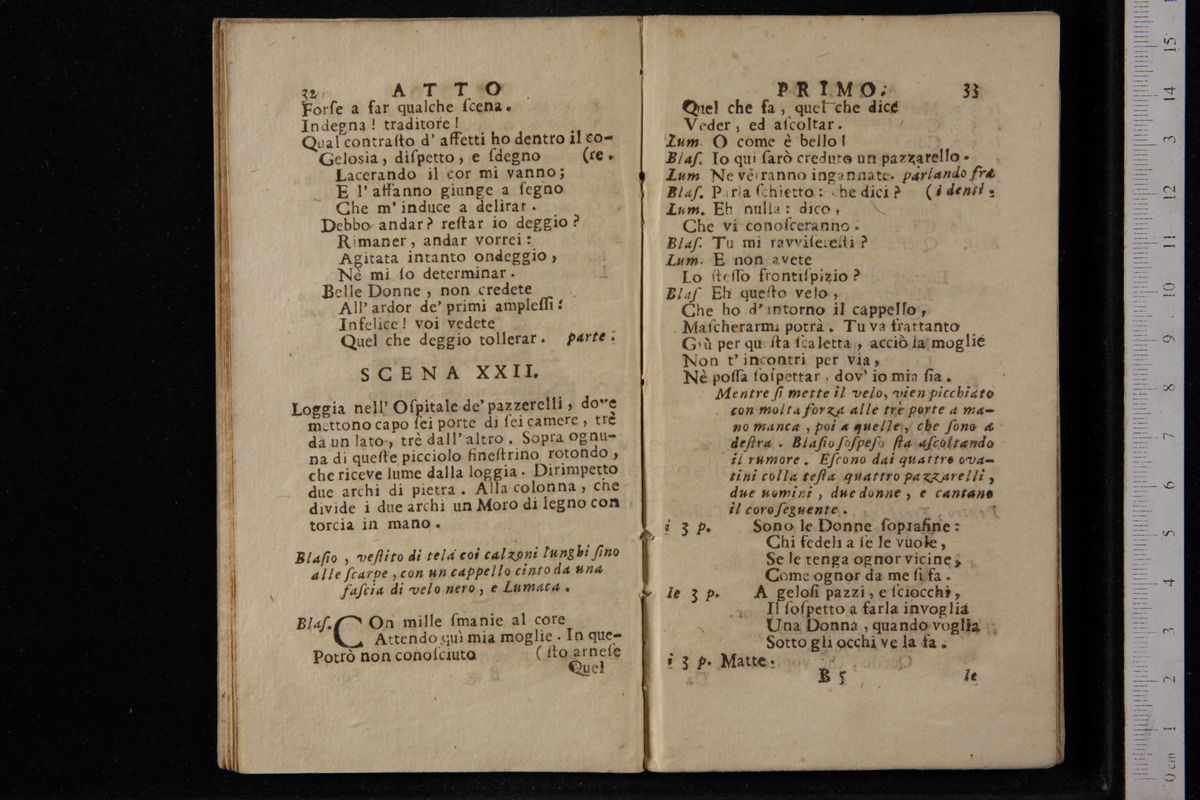 32 ATTO
Forſe a far qualche ſcena.
Indegna! traditore!
Qual contraſto d' affetti ho dentro il co-
Geloſia, diſpetto, e ſdegno (re.
Lacerando il cor mi vanno;
E l' affanno giunge a ſegno
Che m' induce a delirar.
Debbo andar? reſtar io deggio?
Rimaner, andar vorrei:
Agitata intanto ondeggio,
Nè mi ſo determinar.
Belle Donne, non credete
All' ardor de' primi ampleſſi:
Infelice! voi vedete
Quel che deggio tollerar. parte.
SCENA XXII.
Loggia nell' Oſpitale de' pazzerelli, dove
mettono capo ſei porte di ſei camere, trè
da un lato, trè dall' altro. Sopra ognu-
na di queſte picciolo fineſtrino rotondo,
che riceve lume dalla loggia. Dirimpetto
due archi di pietra. Alla colonna, che
divide i due archi un Moro di legno con
torcia in mano.
Blaſio, veſtito di tela coi calzoni lunghi ſino
alle ſcarpe, con un cappello cinto da una
faſcia di velo nero, e Lumaca.
Blaſ. COn mille ſmanie al core
Attendo quì mia moglie. In que-
Potrò non conoſciuto (ſto arneſe
Quel
PRIMO. 33
Quel che fa, quel che dice
Veder, ed aſcoltar.
Lum. O come è bello!
Blaſ. Io qui ſarò creduto un pazzarello.
Lum Ne verranno ingannate. parlando frà
Blaſ. Parla ſchietto: che dici? (i denti.
Lum. Eh nulla: dico,
Che vi conoſceranno.
Blaſ. Tu mi ravviſereſti?
Lum. E non avete
Lo ſteſſo frontiſpizio?
Blaſ Eh queſto velo,
Che ho d'intorno il cappello,
Maſcherarmi potrà. Tu va frattanto
Giù per queſta ſcaletta, acciò la moglie
Non t' incontri per via,
Nè poſſa ſoſpettar, dov' io mia ſia.
Mentre ſi mette il velo, vien picchiato
con molta forza alle trè porte a ma-
no manca, poi a quelle, che ſono a
deſtra. Blaſio ſoſpeſo ſta aſcoltando
il rumore. Eſcono dai quattro ova-
tini colla teſta quattro pazzarelli,
due uomini, due donne, e cantano
il coro ſeguente.
i 3 p. Sono le Donne ſoprafine:
Chi fedeli a ſe le vuole,
Se le tenga ognor vicine,
Come ognor da me ſi fa.
le 3 p. A geloſi pazzi, e ſciocchi,
Il ſoſpetto a farla invoglia
Una Donna, quando voglia
Sotto gli occhi ve la fa.
i 3 p. Matte.
B 5 le
0 cm 1 2 3 4 5 6 7 8 9 10 11 12 13 14 15